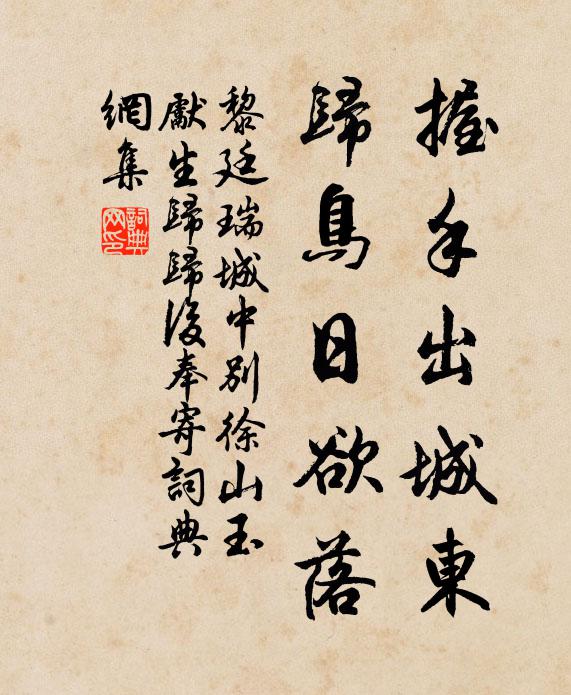 握手出城東
歸鳥日欲落
黎廷瑞城中別徐山玉
獻生歸歸後奉寄詞典
網集
詞典
网印